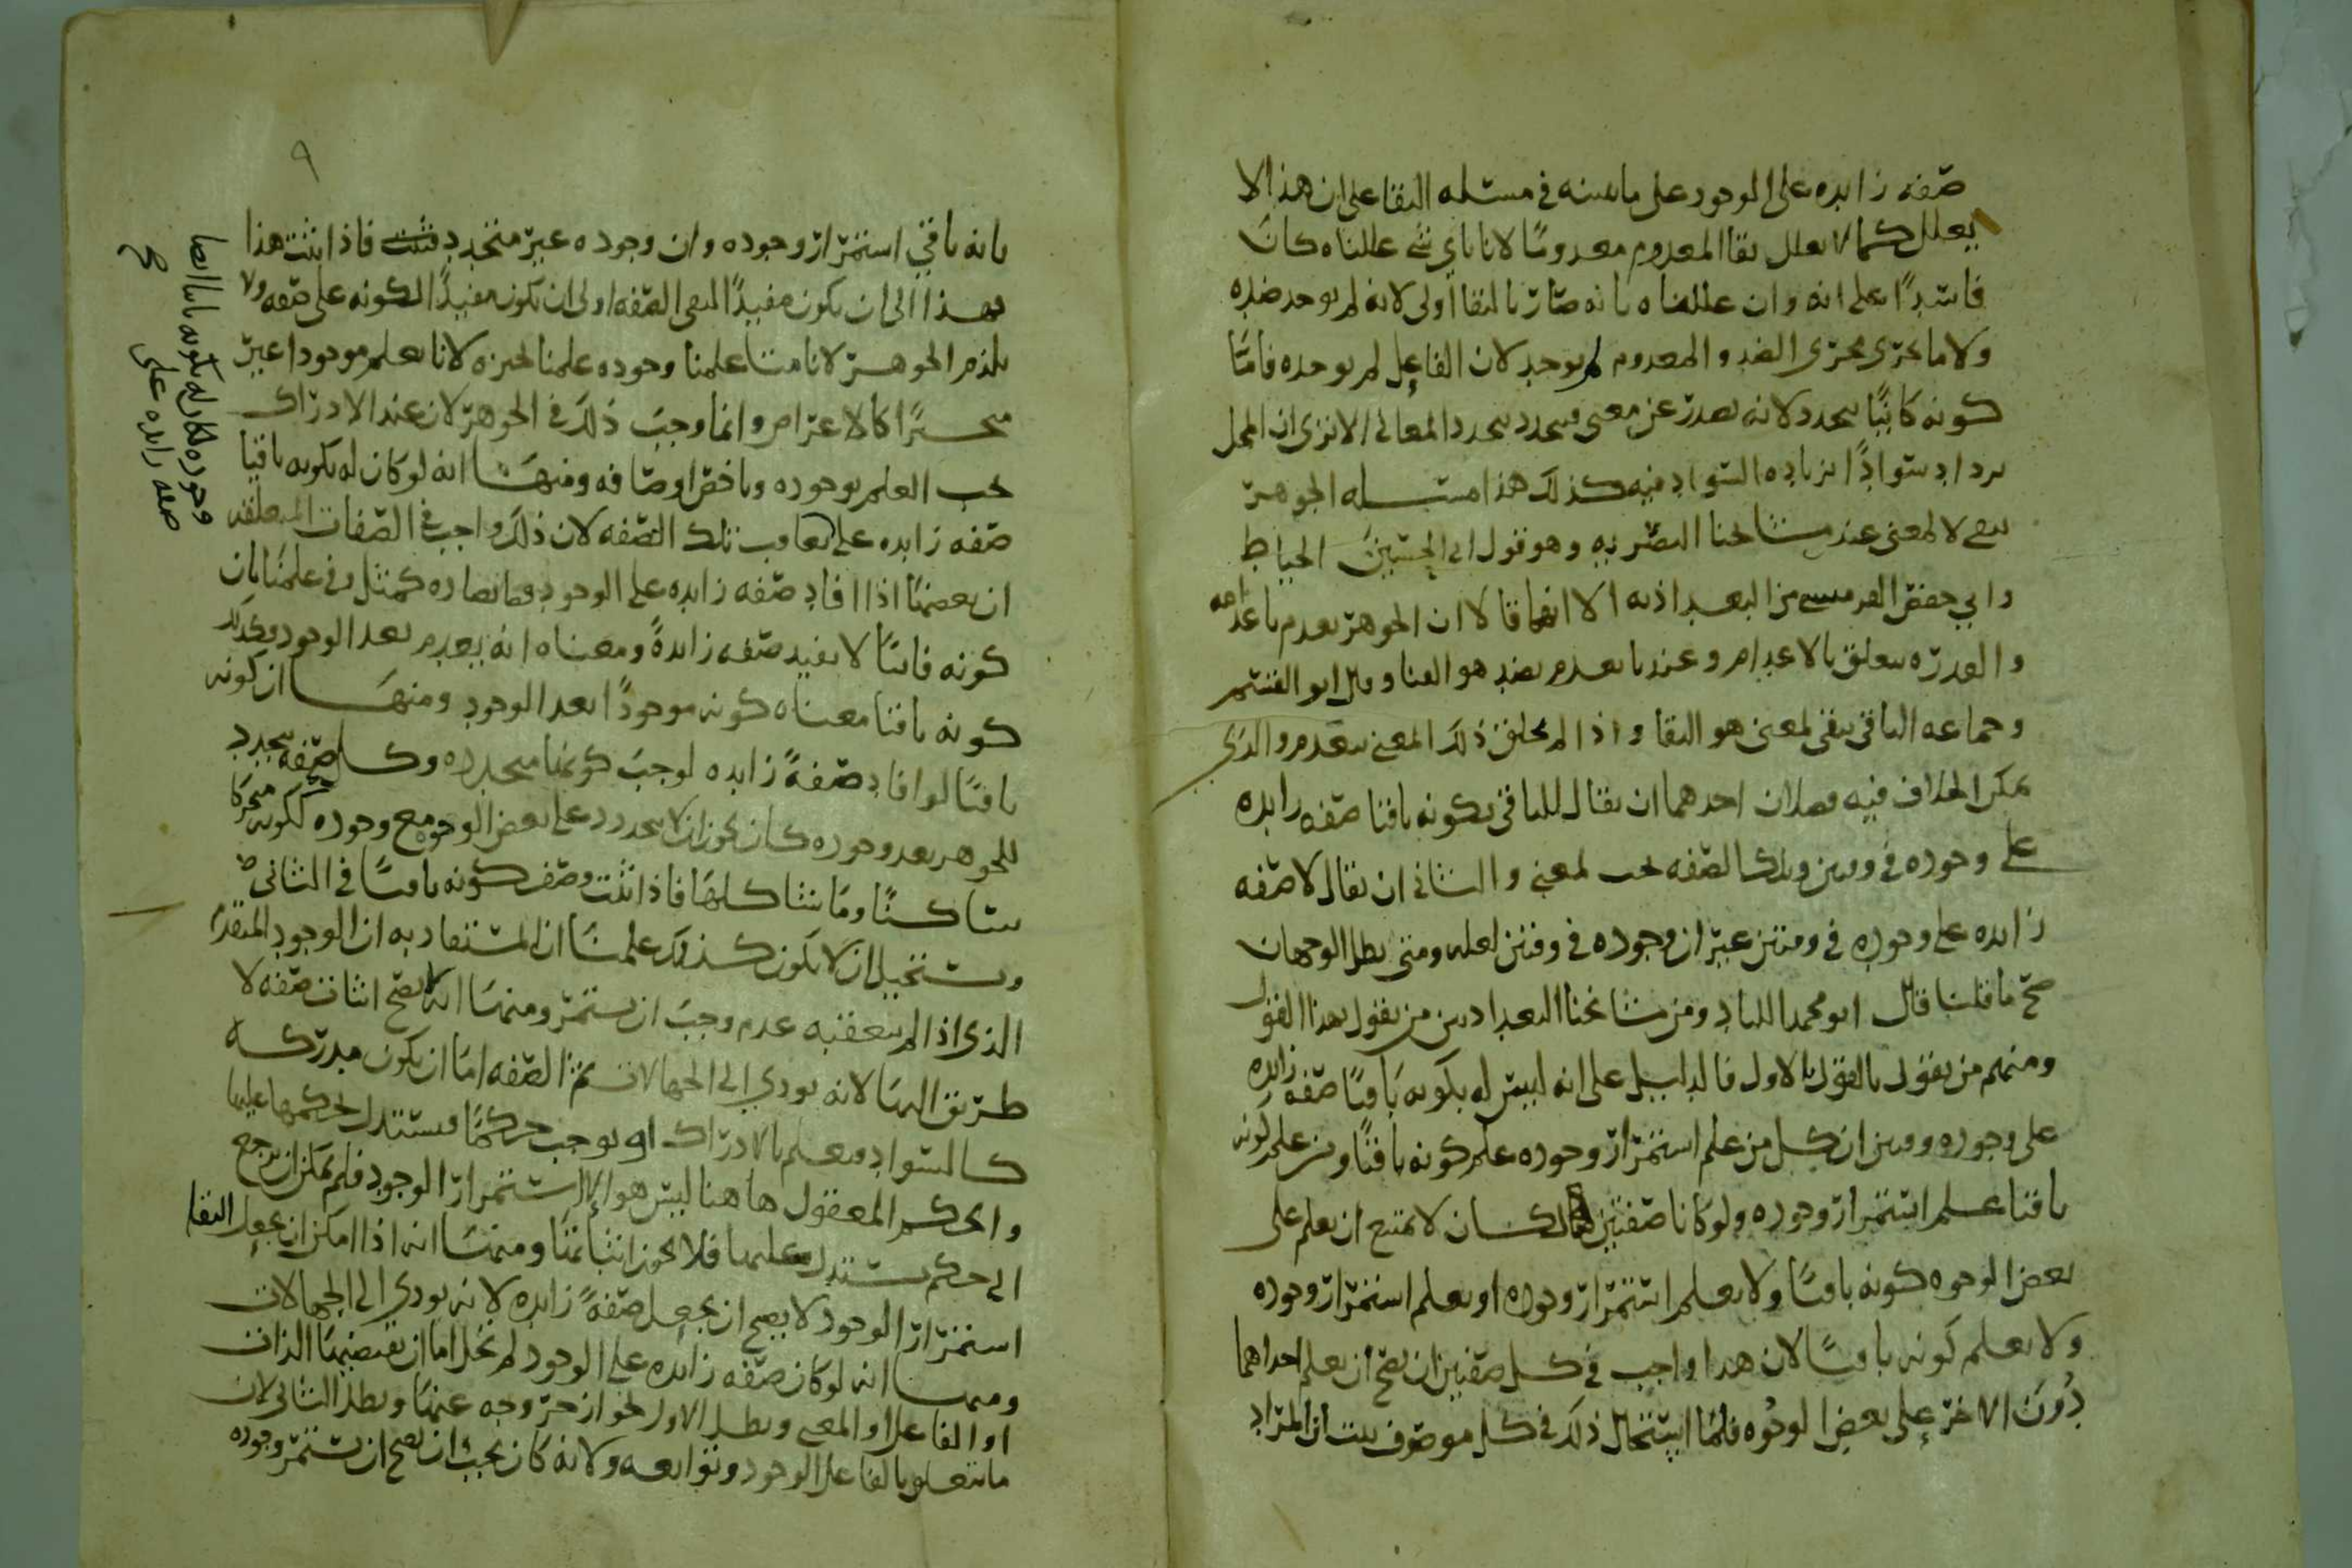 صفه زايده على الوجود على ما نبينه في مسئله البقا على ان هذا لا
يعلل كما لا يعلل بقا المعدوم معدومًا لانا باي شي عللناه كان
فاسدًا على انه وان عللناه بانه صار بالبقا اولى لانه لم يوجد ضده
ولا ما يجري مجرى الضد والمعدوم لم يوجد لان الفاعل لم يوجده فامّا
كونه كاينًا يتجدد لانه يصدر عن معنى فيتجدد بتجدد المعاني الا تري ان المحل
يزداد سوادًا بزياده السواد فيه كذلك هذا مسئله الجوهر
يبقى لا لمعنى عند مشايخنا البصريه وهو قول ابي الحسين الخياط
وابي حفص القرميسي من البغداذيه الا انهما قالا ان الجوهر يعدم باعدامه
والقدره يتعلق بالاعدام وعندنا يعدم بضد هو الفنا وقال ابو القسم
وجماعه الباقي يبقى لمعنى هو البقا واذا لم يخلق ذلك المعنى يعدم والذي
يمكن الخلاف فيه فصلان احدهما ان يقال للباقي بكونه باقيا صفه زايده
على وجوده في وقتين وتلك الصفه تجب لمعنى والثاني ان يقال لا صفه
زايده على وجوده في وقتين غير ان وجوده في وقتين لعله ومتى بطل الوجهان
صح ما قلنا قال ابو محمد اللباد ومن مشايخنا البغدادين من يقول بهذا القول
ومنهم من يقول بالقول الاول فالدليل على انه ليس له بكونه باقيًا صفه زايده
على وجوده وقتين ان كل من علم استمرار وجوده علم كونه باقيًا ومن علم كونه
باقيا علم استمرار وجوده ولو كانا صفتين لكان لا يمتنع ان يعلم على
بعض الوجوه كونه باقيًا ولا يعلم استمرار وجوده او يعلم استمرار وجوده
ولا يعلم كونه باقيًا لان هذا واجب في كل صفتين ان يصح ان يعلم احداهما
دون الاخر على بعض الوجوه فلما استحال ذلك في كل موصوف بينت ان المراد
٩
بانه باقي استمرار وجوده وان وجوده غير متجدد فاذا ثبت هذا
فهذا الى ان يكون مفيدًا لنفي الصفه اولى ان يكون مفيدًا لكونه على صفه ولا
يلزم الجوهر لانا متا علمنا وجوده علمنا تحيزه لانا نعلم موجودا غير
متحيزًا كالاعراض وانما وجب ذلك في الجوهر لان عند الادراك
يجب العلم بوجوده وباخص اوصافه ومنها انه لو كان له بكونه باقيا
صفه زايده على تعاقب تلك الصفه لان ذلك واجب في الصفات المتعلقه
ان بعضها اذا افاد صفه زايده على الوجود فما يضاده كمثل وفي علمنا بان
كونه فانيًا لا يفيد صفه زايدةً ومعناه انه يعدم بعد الوجود فكذلك
كونه باقيا معناه كونه موجودًا بعد الوجود ومنها ان كونه
باقيًا لو افاد صفةً زايده لوجب كونها متجدده وكل صفه يتجدد
للجوهر بعد وجوده كان يجوز ان لا يتجدد على بعض الوجوه مع وجوده ككونه متحركا
ساكنًا وما شاكلها فاذا ثبت وصف كونه باقيًا في الثاني
ويستحيل ان لا يكون كذلك علمنا ان المستفاد به ان الوجود المتقدم
الذي اذا لم يتعقبه عدم وجب ان يستمر ومنها انه لا يصح اثبات صفه لا
طريق اليها لانه يودي الى الجهالات ثم الصفه اما ان يكون مدركه
كالسواد فيعلم بالادراك او يوجب حركمًا فيستدل بحكمها عليها
والحكم المعقول هاهنا ليس هو الا استمرار الوجود فلم يمكن ان يرجع
الى حكم يستدل عليها فلا يجوز اثباتها ومنها انه اذا امكن ان يجعل البقا
استمرار الوجود لا يصح ان يجعل صفةً زايده لانه يودي الى الجهالات
ومنها انه لو كان صفه زايده على الوجود لم تخل اما ان يقتضيها الذات
او الفاعل او المعنى وبطل الاول لجواز خروجه عنها وبطل الثاني لان
ما يتعلق بالفاعل الوجود وتوابعه ولانه كان يجب ان يصح ان يستمر وجوده
وجوده لكان له بكونه باقيا ايضا
صفه زايده على
صح